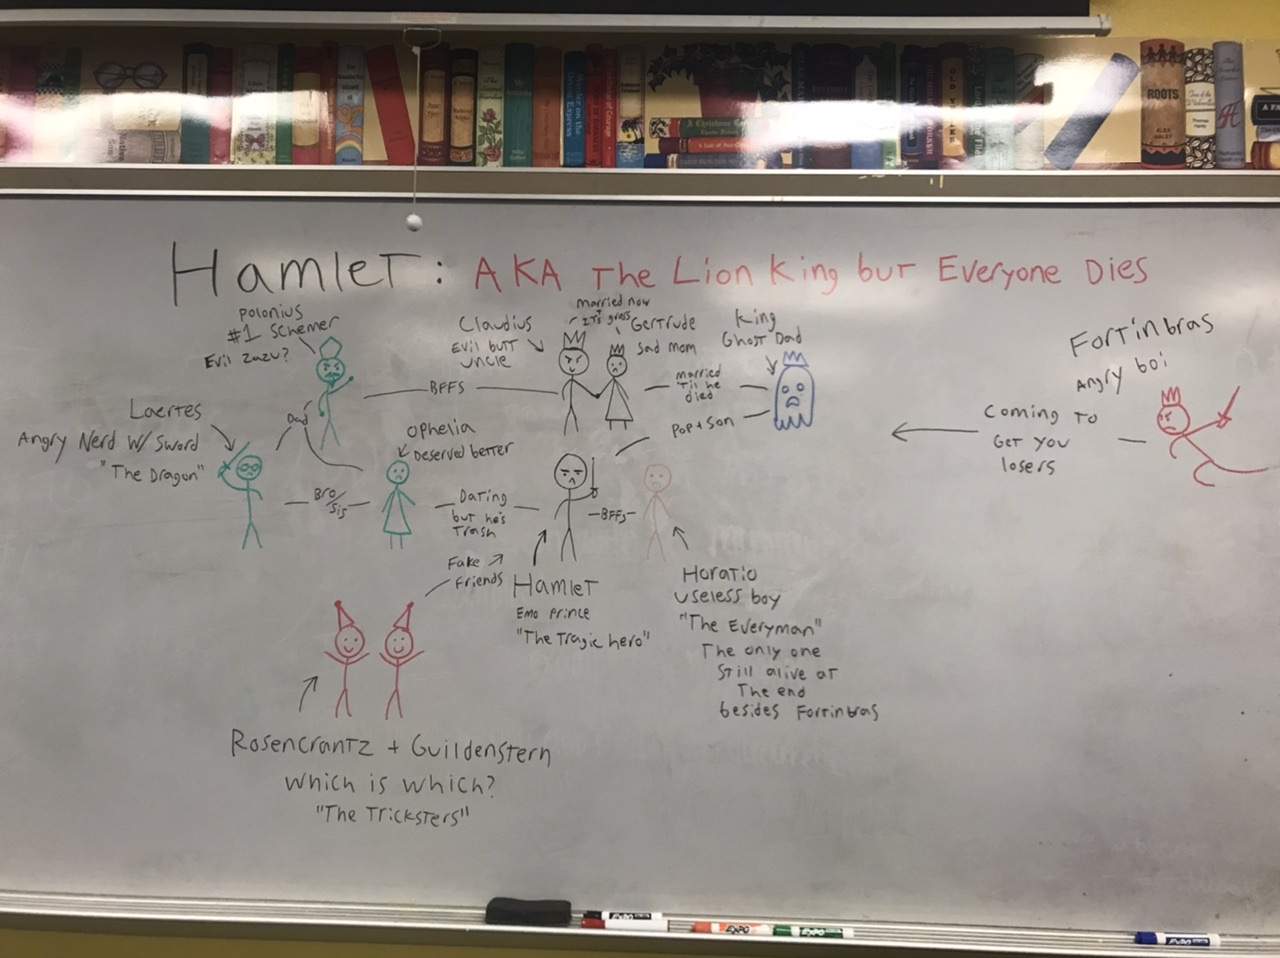 ROOTS
ALEX HALEY
A Christmas
HAMLET: AKA The Lion King but Everyone Dies
Polonius
#1 Schemer
Evil Zazu?
Claudius
Evil butt
uncle
married now
IT's gross
Gertrude
Sad mom
King
Ghost Dad
Fortinbras
Angry boi
Coming to
Get you
losers
BFFS
married
Til he
died
Pop + Son
Laertes
Angry Nerd w/ Sword
"The Dragon"
Dad
Ophelia
Deserved better
Bro/
Sis
Dating
but he's
Trash
BFFs
Fake
Friends
Hamlet
Emo Prince
"The Tragic hero"
Horatio
useless boy
"The Everyman"
The only one
Still alive at
The end
besides Fortinbras
Rosencrantz + Guildenstern
Which is which?
"The Tricksters"
EXPO
EXPO
EXPO
EXPO